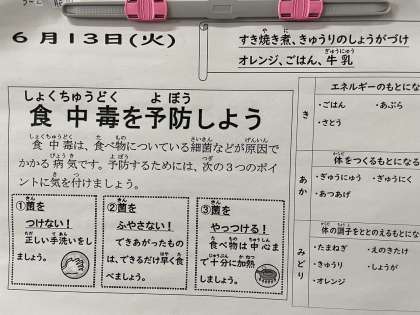 6月13日(火)
すき焼き煮、きゅうりのしょうがづけ
オレンジ、ごはん、牛乳
食中毒を予防しよう
食中毒は、食べ物についている細菌などが原因で
かかる病気です。予防するためには、次の3つのポイ
ントに気を付けましょう。
①菌を
つけない！
正しい手洗いをし
ましょう。
②菌を
ふやさない！
できあがったもの
は、できるだけ早く食
べましょう。
③菌を
やっつける！
食べ物は中心ま
で十分に加熱
しましょう。
き
エネルギーのもとにな
・ごはん ・あぶら
・さとう
あか
体をつくるもとになる
・ぎゅうにゅう ・ぎゅうにく
・あつあげ
みどり
体の調子をととのえるもとにな
・たまねぎ ・えのきたけ
・きゅうり ・しょうが
・オレンジ